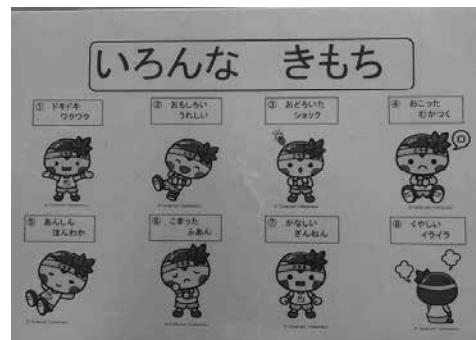 いろんな　きもち
① ドキドキ
ワクワク
② おもしろい
うれしい
③ おどろいた
ショック
④ おこった
むかつく
⑤ あんしん
ほんわか
⑥ こまった
ふあん
⑦ かなしい
ざんねん
⑧ くやしい
イライラ